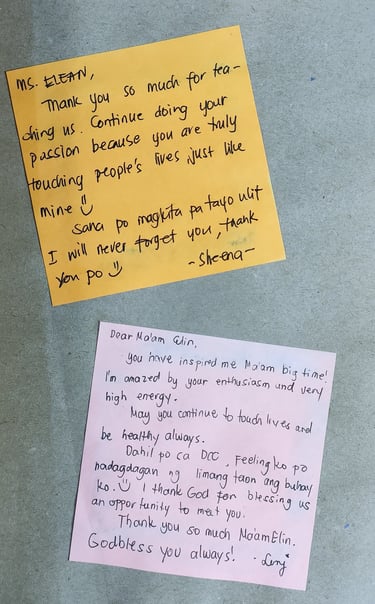 Ms. ELEAN,
Thank you so much for tea-
ching us. Continue doing your
passion because you are truly
touching people's lives just like
mine
Sana po magkita pa tayo ulit
I will never forget you, thank
you po
- Sheena -
Dear Ma'am Elin,
You have inspired me Ma'am big time!
I'm amazed by your enthusiasm and very
high energy.
May you continue to touch lives and
be healthy always.
Dahil po ca DCC, Feeling ko po
nadagdagan ng limang taon ang buhay
ko. I thank God for blessing us
an opportunity to meet you.
Thank you so much Ma'am Elin.
Godbless you always!